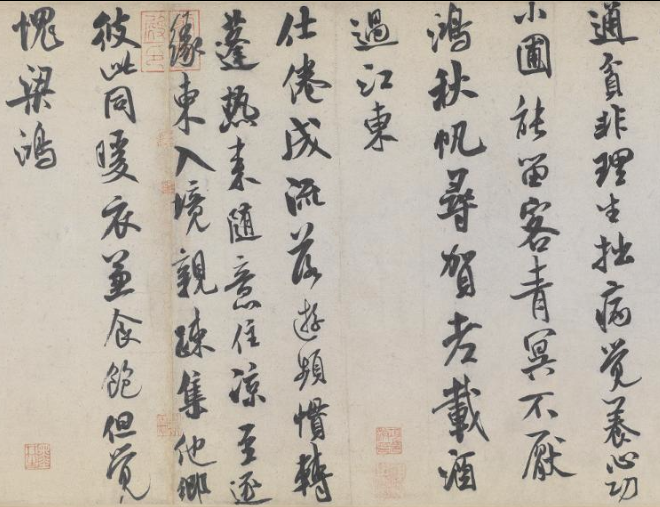 通貧非理生拙病覺養心功
小圃能留客青冥不厭
鴻秋帆尋賀老載酒
過江東
仕倦成流落遊頻慣轉
蓬熱来随意住凉至逐
緣東入境親疎集他鄉
彼此同暖衣兼食飽但覺
愧梁鴻